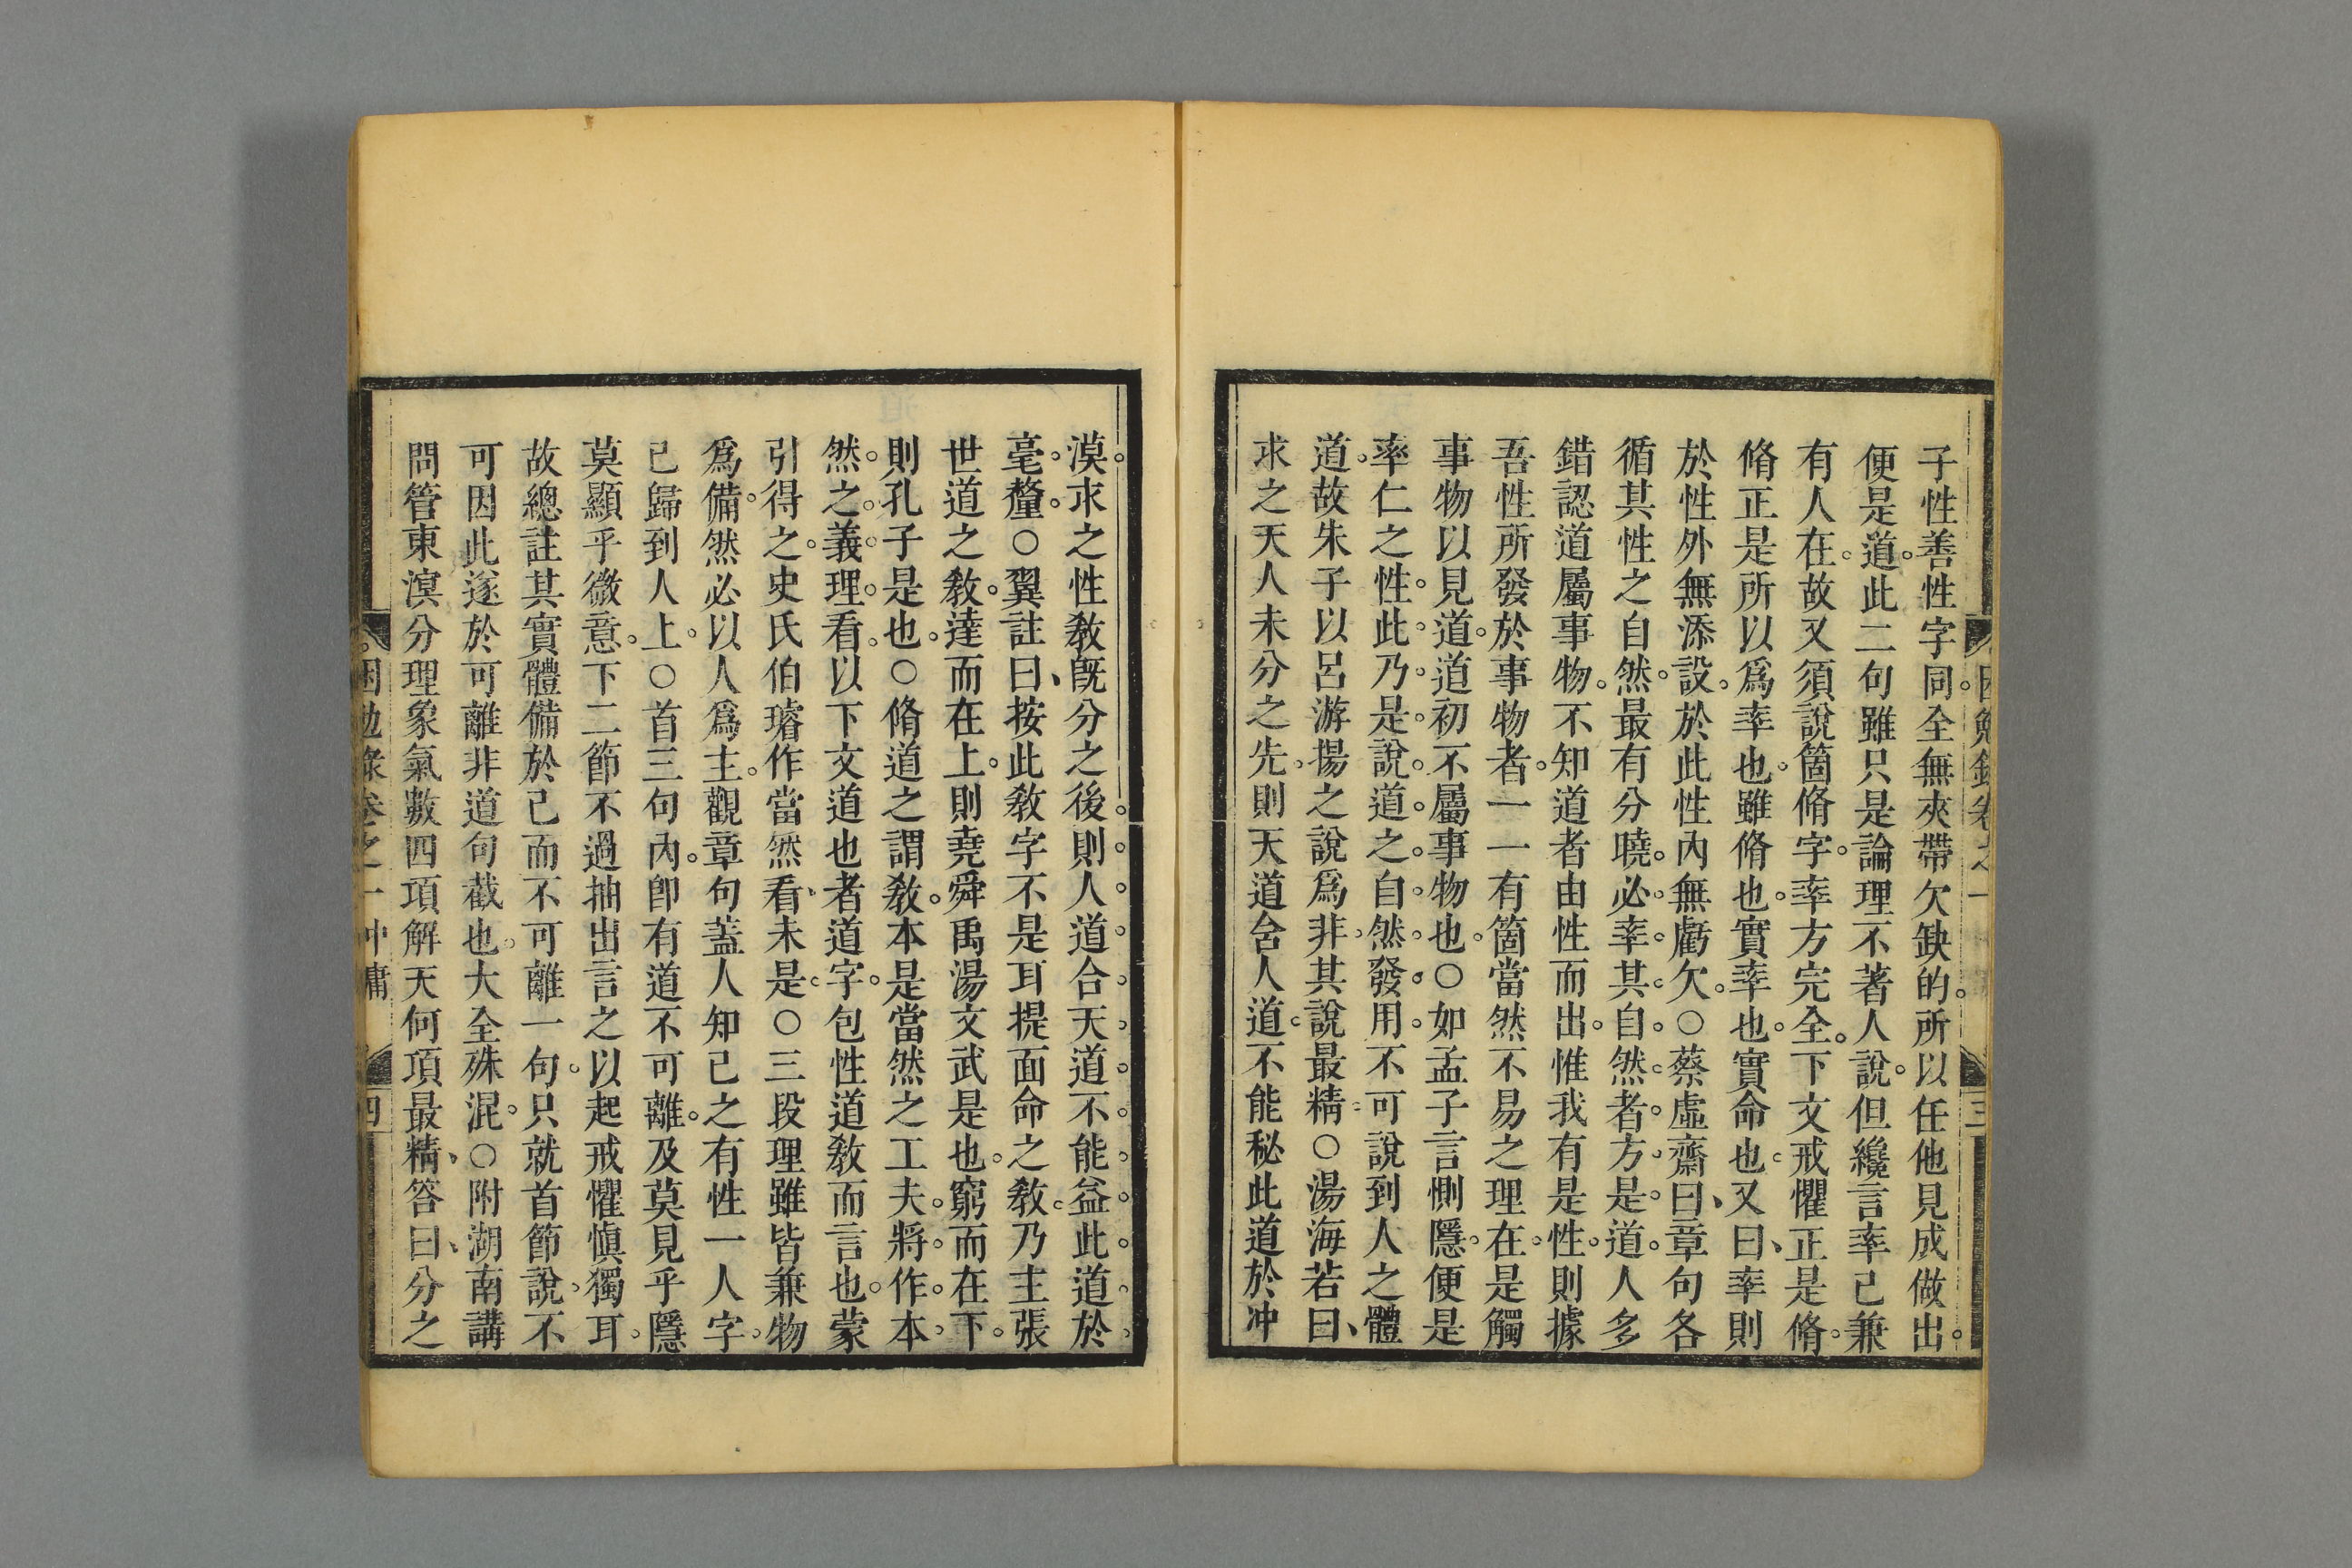 子性善性字同全無夾帶欠缺的所以任他見成做出
便是道此二句雖只是論理不著人說但纔言率己兼
有人在故又須說箇脩字率方完全下文戒懼正是脩
脩正是所以爲率也雖脩也實率也實命也又曰率則
於性外無添設於此性內無虧欠○蔡虛齋曰章句各
循其性之自然最有分曉必率其自然者方是道人多
錯認道屬事物不知道者由性而出惟我有是性則據
吾性所發於事物者一一有箇當然不易之理在是觸
事物以見道道初不屬事物也○如孟子言惻隱便是
率仁之性此乃是說道之自然發用不可說到人之體
道故朱子以呂游揚之說爲非其說最精○湯海若曰
求之天人未分之先則天道舍人道不能秘此道於冲
漠求之性敎旣分之後則人道合天道不能益此道於
毫釐○翼註曰按此敎字不是耳提面命之敎乃主張
世道之敎達而在上則堯舜禹湯文武是也窮而在下
則孔子是也○脩道之謂敎本是當然之工夫將作本
然之義理看以下文道也者道字包性道敎而言也蒙
引得之史氏伯璿作當然看未是○三段理雖皆兼物
爲備然必以人爲主觀章句蓋人知己之有性一人字
已歸到人上○首三句內卽有道不可離及莫見乎隱
莫顯乎微意下二節不過抽出言之以起戒懼愼獨耳
故總註其實體備於己而不可離一句只就首節說不
可因此遂於可離非道句截也大全殊混○附湖南講
問管東溟分理象氣數四項解天何項最精答曰分之
困勉錄卷之一 中庸 四